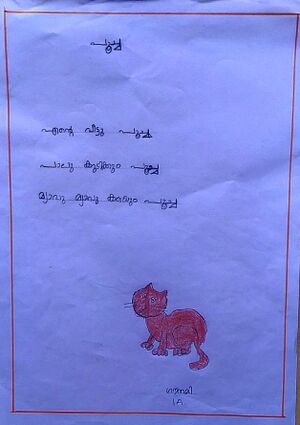 പൂച്ച
എന്റെ വീട്ടു പൂച്ച
പാലു കുടിക്കും പൂച്ച
മ്യാവു മ്യാവൂ കരയും പൂച്ച
1 A